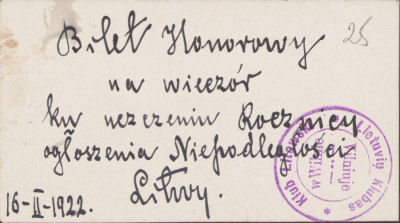 Bilet Honorowy
25
na wieczór
ku uczczeniu Rocznicy
ogłoszenia Niepodległości
Litwy.
16-II-1922.
Klub Litewski Lietuvių Klubas
w Wilnie
Vilniuje